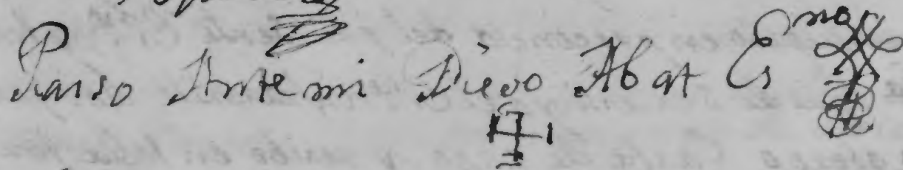 Passo Antemi Diego Abat Es^no